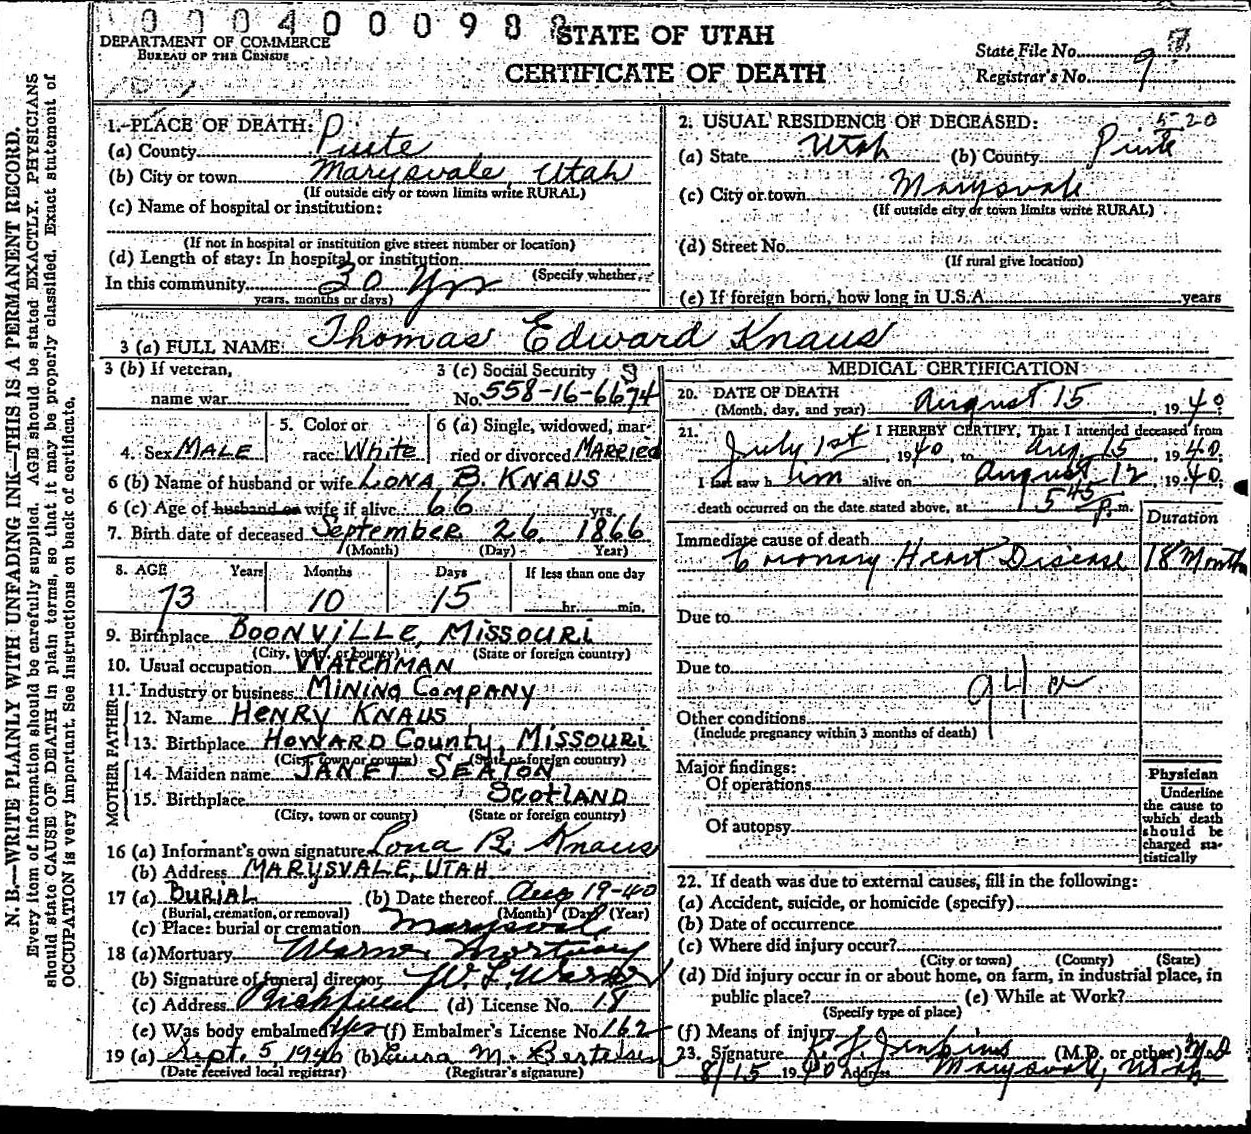 0004000988
STATE OF UTAH
CERTIFICATE OF DEATH
DEPARTMENT OF COMMERCE
BUREAU OF THE CENSUS
State File No.
Registrar's No. 9
N. B.—WRITE PLAINLY WITH UNFADING INK—THIS IS A PERMANENT RECORD.
Every item of information should be carefully supplied. AGE should be stated EXACTLY. PHYSICIANS
should state CAUSE OF DEATH in plain terms, so that it may be properly classified. Exact statement of
OCCUPATION is very important. See instructions on back of certificate.
1. PLACE OF DEATH:
(a) County Piute
(b) City or town Marysvale, Utah
(If outside city or town limits write RURAL)
(c) Name of hospital or institution:
(If not in hospital or institution give street number or location)
(d) Length of stay: In hospital or institution
(Specify whether
In this community 30 Yrs
years, months or days)
2. USUAL RESIDENCE OF DECEASED: 5-20
(a) State Utah (b) County Piute
(c) City or town Marysvale
(If outside city or town limits write RURAL)
(d) Street No.
(If rural give location)
(e) If foreign born, how long in U.S.A. years
3 (a) FULL NAME: Thomas Edward Knaus
3 (b) If veteran,
name war
3 (c) Social Security
No. 558-16-6674
4. Sex MALE
5. Color or
race White
6 (a) Single, widowed, mar-
ried or divorced MARRIED
6 (b) Name of husband or wife LONA B. KNAUS
6 (c) Age of husband or wife if alive 66 yrs.
7. Birth date of deceased September 26, 1866
(Month) (Day) Year)
8. AGE Years Months Days If less than one day
73 10 15 hr. min.
9. Birthplace BOONVILLE, MISSOURI
(City, town, or county) (State or foreign country)
10. Usual occupation WATCHMAN
11. Industry or business MINING COMPANY
FATHER
12. Name HENRY KNAUS
13. Birthplace HOWARD County, MISSOURI
(City, town or county) (State or foreign country)
MOTHER
14. Maiden name JANET SEATON
15. Birthplace SCOTLAND
(City, town or county) (State or foreign country)
16 (a) Informant's own signature Lona B. Knaus
(b) Address MARYSVALE, UTAH
17 (a) BURIAL (b) Date thereof Aug 19-40
(Burial, cremation, or removal) (Month) (Day) (Year)
(c) Place: burial or cremation Marysvale
18 (a) Mortuary Mortuary
(b) Signature of funeral director W. L.
(c) Address Richfield (d) License No. 18
(e) Was body embalmed? yes (f) Embalmer's License No. 162
19 (a) Sept. 5 1940 (b) Laura M. Bertelsen
(Date received local registrar) (Registrar's signature)
MEDICAL CERTIFICATION
20. DATE OF DEATH
(Month, day, and year) August 15, 1940;
21. I HEREBY CERTIFY, That I attended deceased from
July 1st, 1940, to Aug 15, 1940;
I last saw him alive on August 12, 1940;
death occurred on the date stated above, at 5 45 P. m.
Duration
Immediate cause of death
Coronary Heart Disease 18 Months
Due to
Due to
94 a
Other conditions
(Include pregnancy within 3 months of death)
Major findings:
Of operations
Of autopsy
Physician
Underline
the cause to
which death
should be
charged sta-
tistically
22. If death was due to external causes, fill in the following:
(a) Accident, suicide, or homicide (specify)
(b) Date of occurrence
(c) Where did injury occur?
(City or town) (County) (State)
(d) Did injury occur in or about home, on farm, in industrial place, in
public place? (e) While at Work?
(Specify type of place)
(f) Means of injury
23. Signature Jenkins (M.D. or other) M.D
8/15 1940 Address Marysvale, Utah